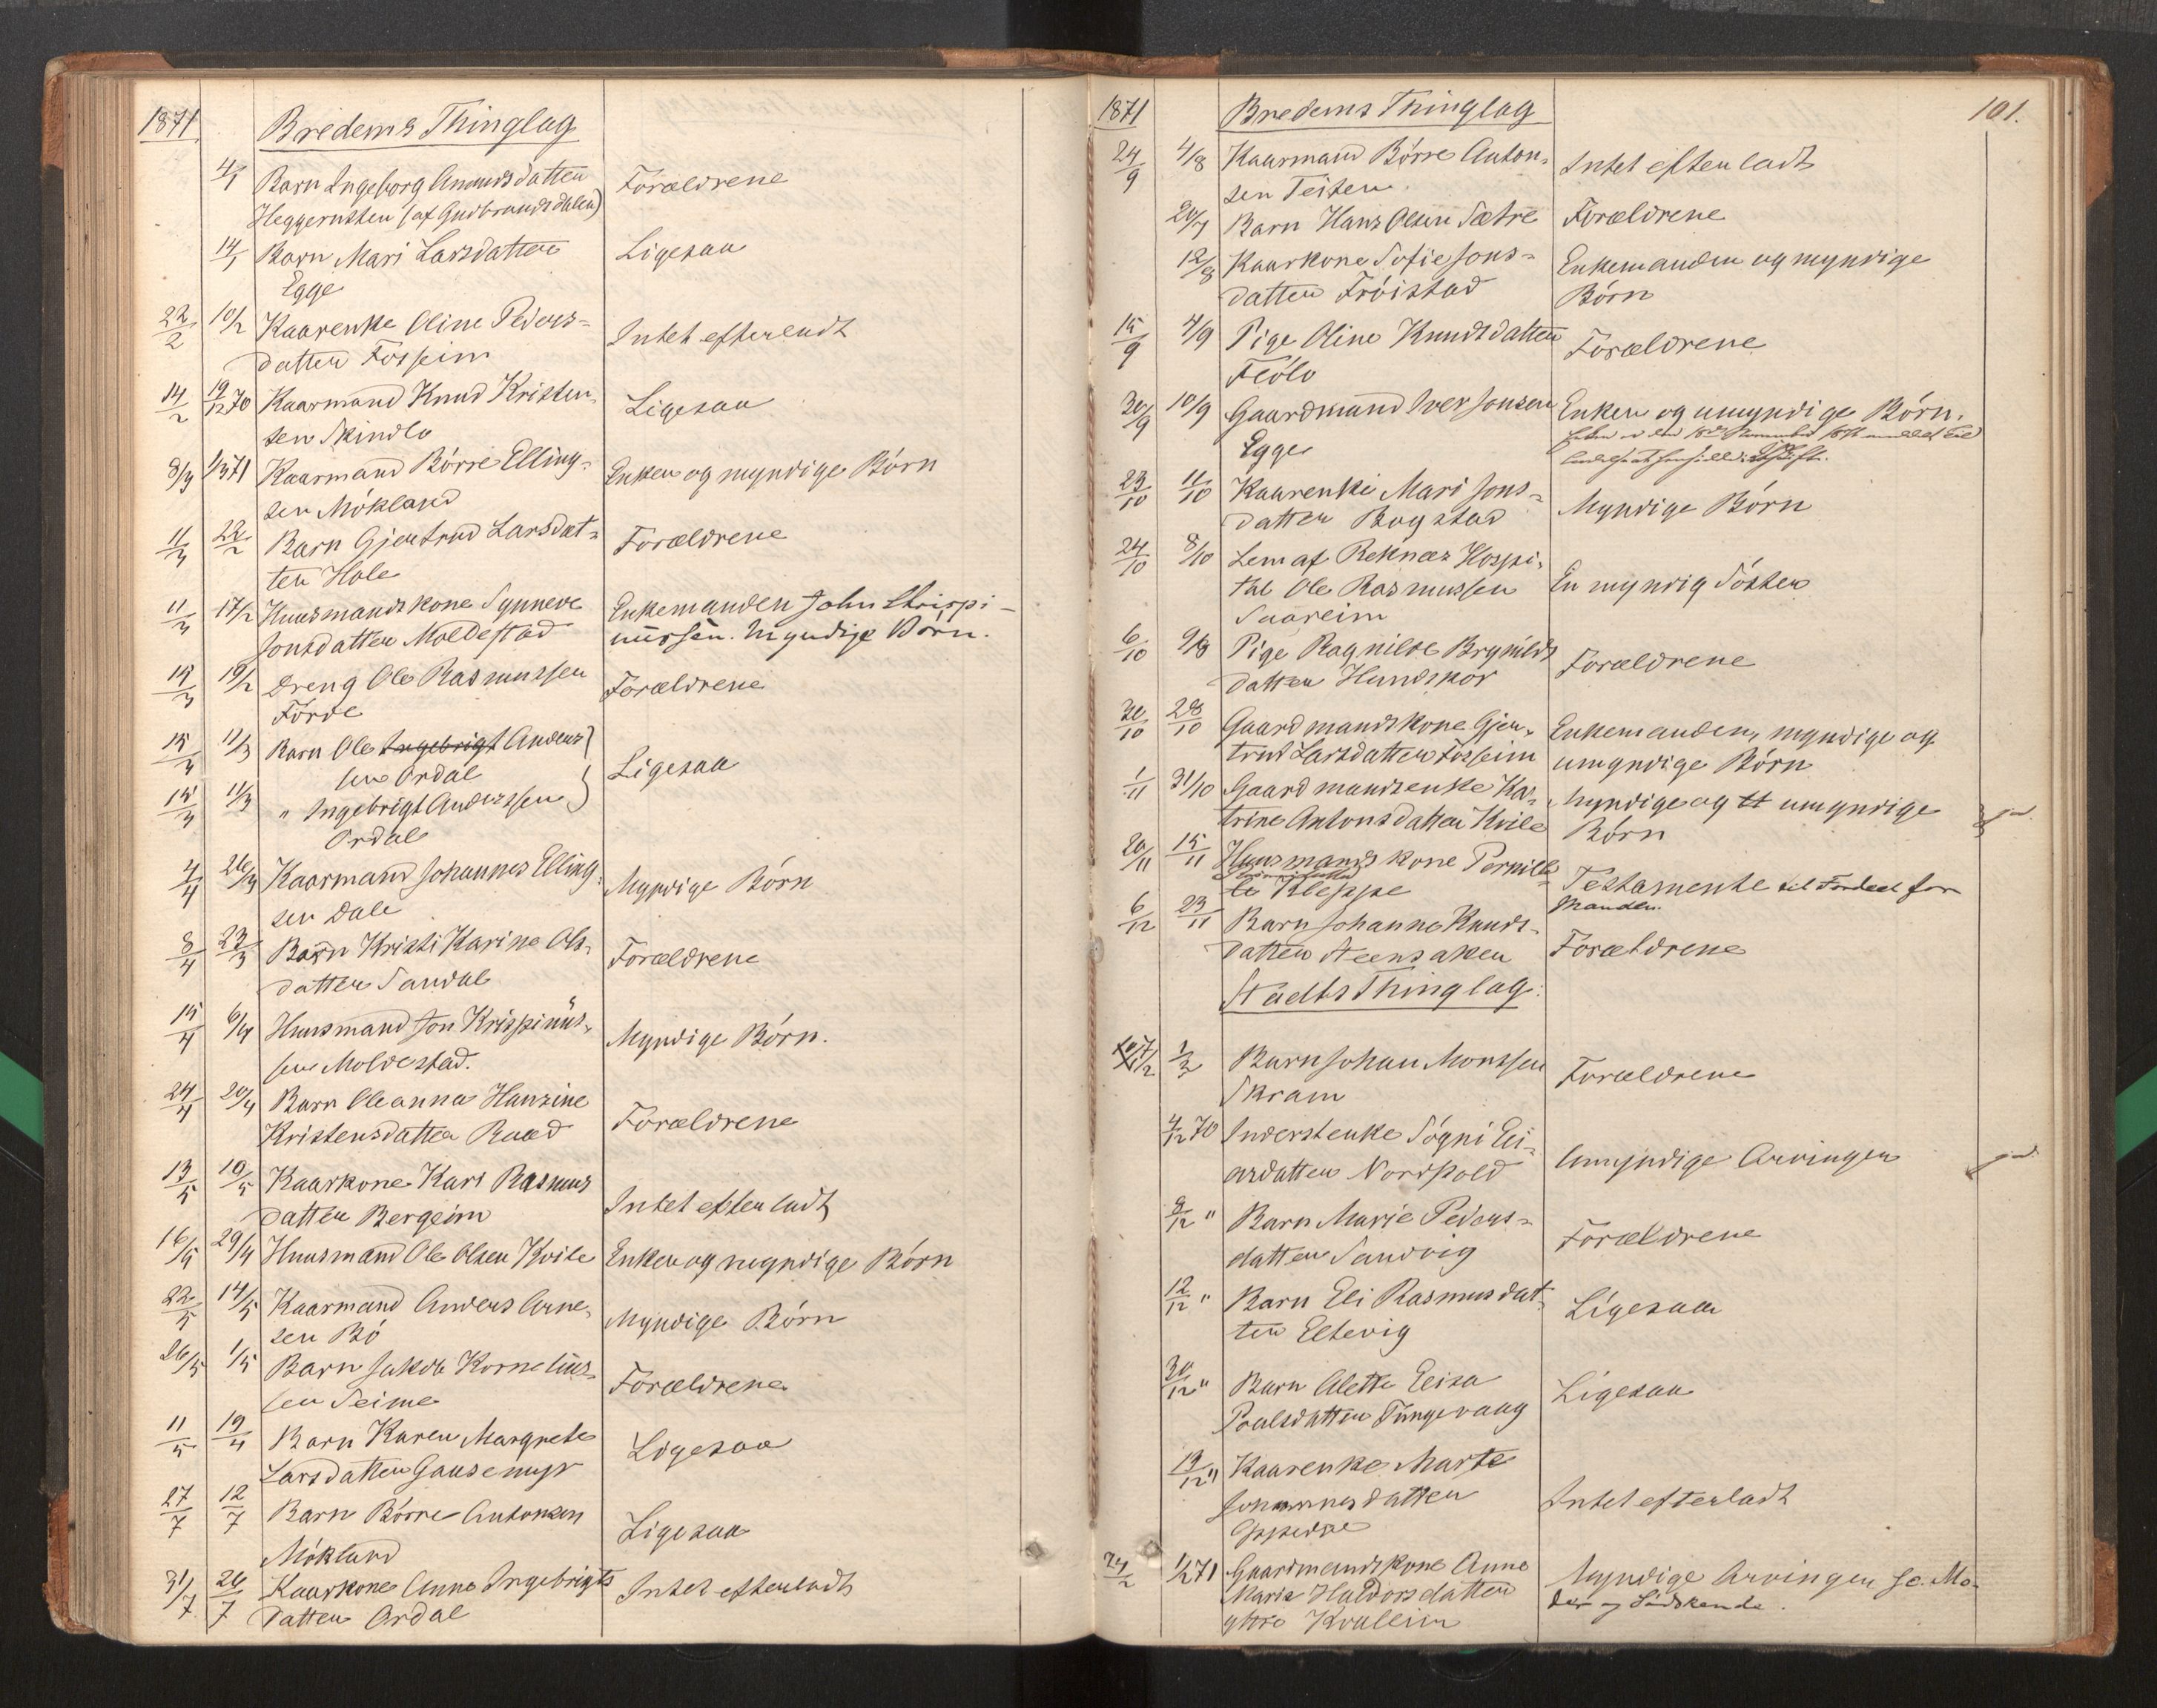 1871 Bredems Thinglag
4/1 Barn Ingeborg Amundsdatter Forældrene
Heggerusten (af Gudbrandsdalen)
14/1 Barn Mari Larsdatter Ligesaa
Egge
22/2 10/2 Kaarenke Oline Peders-
datter Fosseim Intet efterladt
14/2 19/12 70 Kaarmand Knud Kristen-
sen Skindlo Ligesaa
8/3 1/3 71 Kaarmand Börre Elling-
sen Mökland Enken og myndige Börn
11/3 22/2 Barn Gjertrud Larsdat-
ter Hole Forældrene
11/3 17/2 Huusmandskone Synneve Enkemanden John Chrispi-
Jonsdatter Moldestad nussen. Myndige Börn.
15/3 19/2 Dreng Ole Rasmussen Forældrene
Förde
15/3 11/3 Barn Ole Ingebrigt Anders
sen Ordal Ligesaa
15/3 11/3 " Ingebrigt Anderssen
Ordal
4/4 26/3 Kaarmand Johannes Elling-
sen Dale Myndige Börn
8/4 23/3 Barn Kristi Karine Ols-
datter Sandal Forældrene
15/4 6/4 Huusmand Jon Krispinus-
sen Moldestad. Myndige Börn.
24/4 20/4 Barn Oleanna Hansine
Kristensdatter Raad Forældrene
13/5 10/5 Kaarkone Kari Rasmus
datter Bergeim Intet efterladt
16/5 29/4 Huusmand Ole Olsen Kvile Enken og myndige Börn
22/5 14/5 Kaarmand Anders Arne-
sen Bö Myndige Börn
26/5 1/5 Barn Jakob Kornelius-
sen Seime Forældrene
11/5 19/4 Barn Karen Margrete
Larsdatter Gausemyr Ligesaa
27/7 12/7 Barn Börre Antonsen
Mökland Ligesaa
31/7 26/7 Kaarkone Anne Ingebrigts Intet efterladt
datter Ordal
1871 Bredems Thinglag 101.
24/9 4/8 Kaarmand Börre Anton-
sen Teiten Intet efterladt
20/7 Barn Hans Olsen Sætre Forældrene
12/8 Kaarkone Sofie Jons- Enkemanden og myndige
datter Fröistad Börn
15/9 4/9 Pige Oline Knudsdatter Forældrene
Flölo
30/9 10/9 Gaardmand Iver Jonsen Enken og umyndige Börn.
Egge
23/10 11/10 Kaarenke Mari Jons-
datter Bogstad Myndige Börn
24/10 8/10 Lem af Reknæs Hospi-
tal Ole Rasmussen En myndig Söster
Saareim
6/10 9/8 Pige Ragnilde Brynilds
datter Hundskor Forældrene
30/10 28/10 Gaardmandskone Gjer- Enkemanden, myndige og
trud Larsdatter Fosseim umyndige Börn
1/11 31/10 Gaardmandsenke Ka- Myndige og umyndige
trine Antonsdatter Kvile Börn
20/11 15/11 Huusmands kone Pernille
Kleppe Testamente til Fordeel for
Manden.
6/12 23/11 Barn Johanne Knuds-
datter Steensaker Forældrene
Stadts Thinglag.
7/2 1/2 Barn Johan Monssen
Skram Forældrene
4/12 70 Inderstenke Sögni Ei-
ardatter Nordpold Umyndige Arvinger
9/12 " Barn Marie Peders-
datter Sandvig Forældrene
12/12 " Barn Eli Rasmusdat-
ter Eltevig Ligesaa
30/12 " Barn Alette Elisa
Poulsdatter Tungevaag Ligesaa
19/12 " Kaarenke Marte
Johannesdatter Intet efterladt
Oppedal
24/2 1/2 71 Gaardmandskone Anne Myndige Arvinger sc. Mo-
Marie Haldorsdatter der og Södskende.
Kvalleim